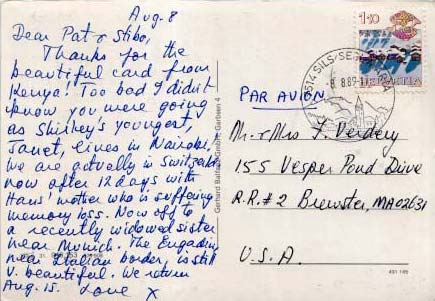 Aug. 8
Dear Pat & Stibo,
Thanks for the
beautiful card from
Kenya! Too bad I didn't
know you were going
as Shirley's youngest,
Janet, lives in Nairobi.
We are actually in Switzerld
now after 12 days with
Hans' mother who is suffering
memory loss. Now off to
a recently widowed sister
near Munich. The Engadine,
near Italian border, is still
v. beautiful. We return
Aug. 15. Love X
Gerhard Baumann GmbH Garbsen 4
110
HELVETIA
7514 SILS/SEGL
8. 8.89
PAR AVION
Mr. & Mrs F. Verdery
155 Vesper Pond Drive
R.R. # 2 Brewster, MA 02631
U.S.A.